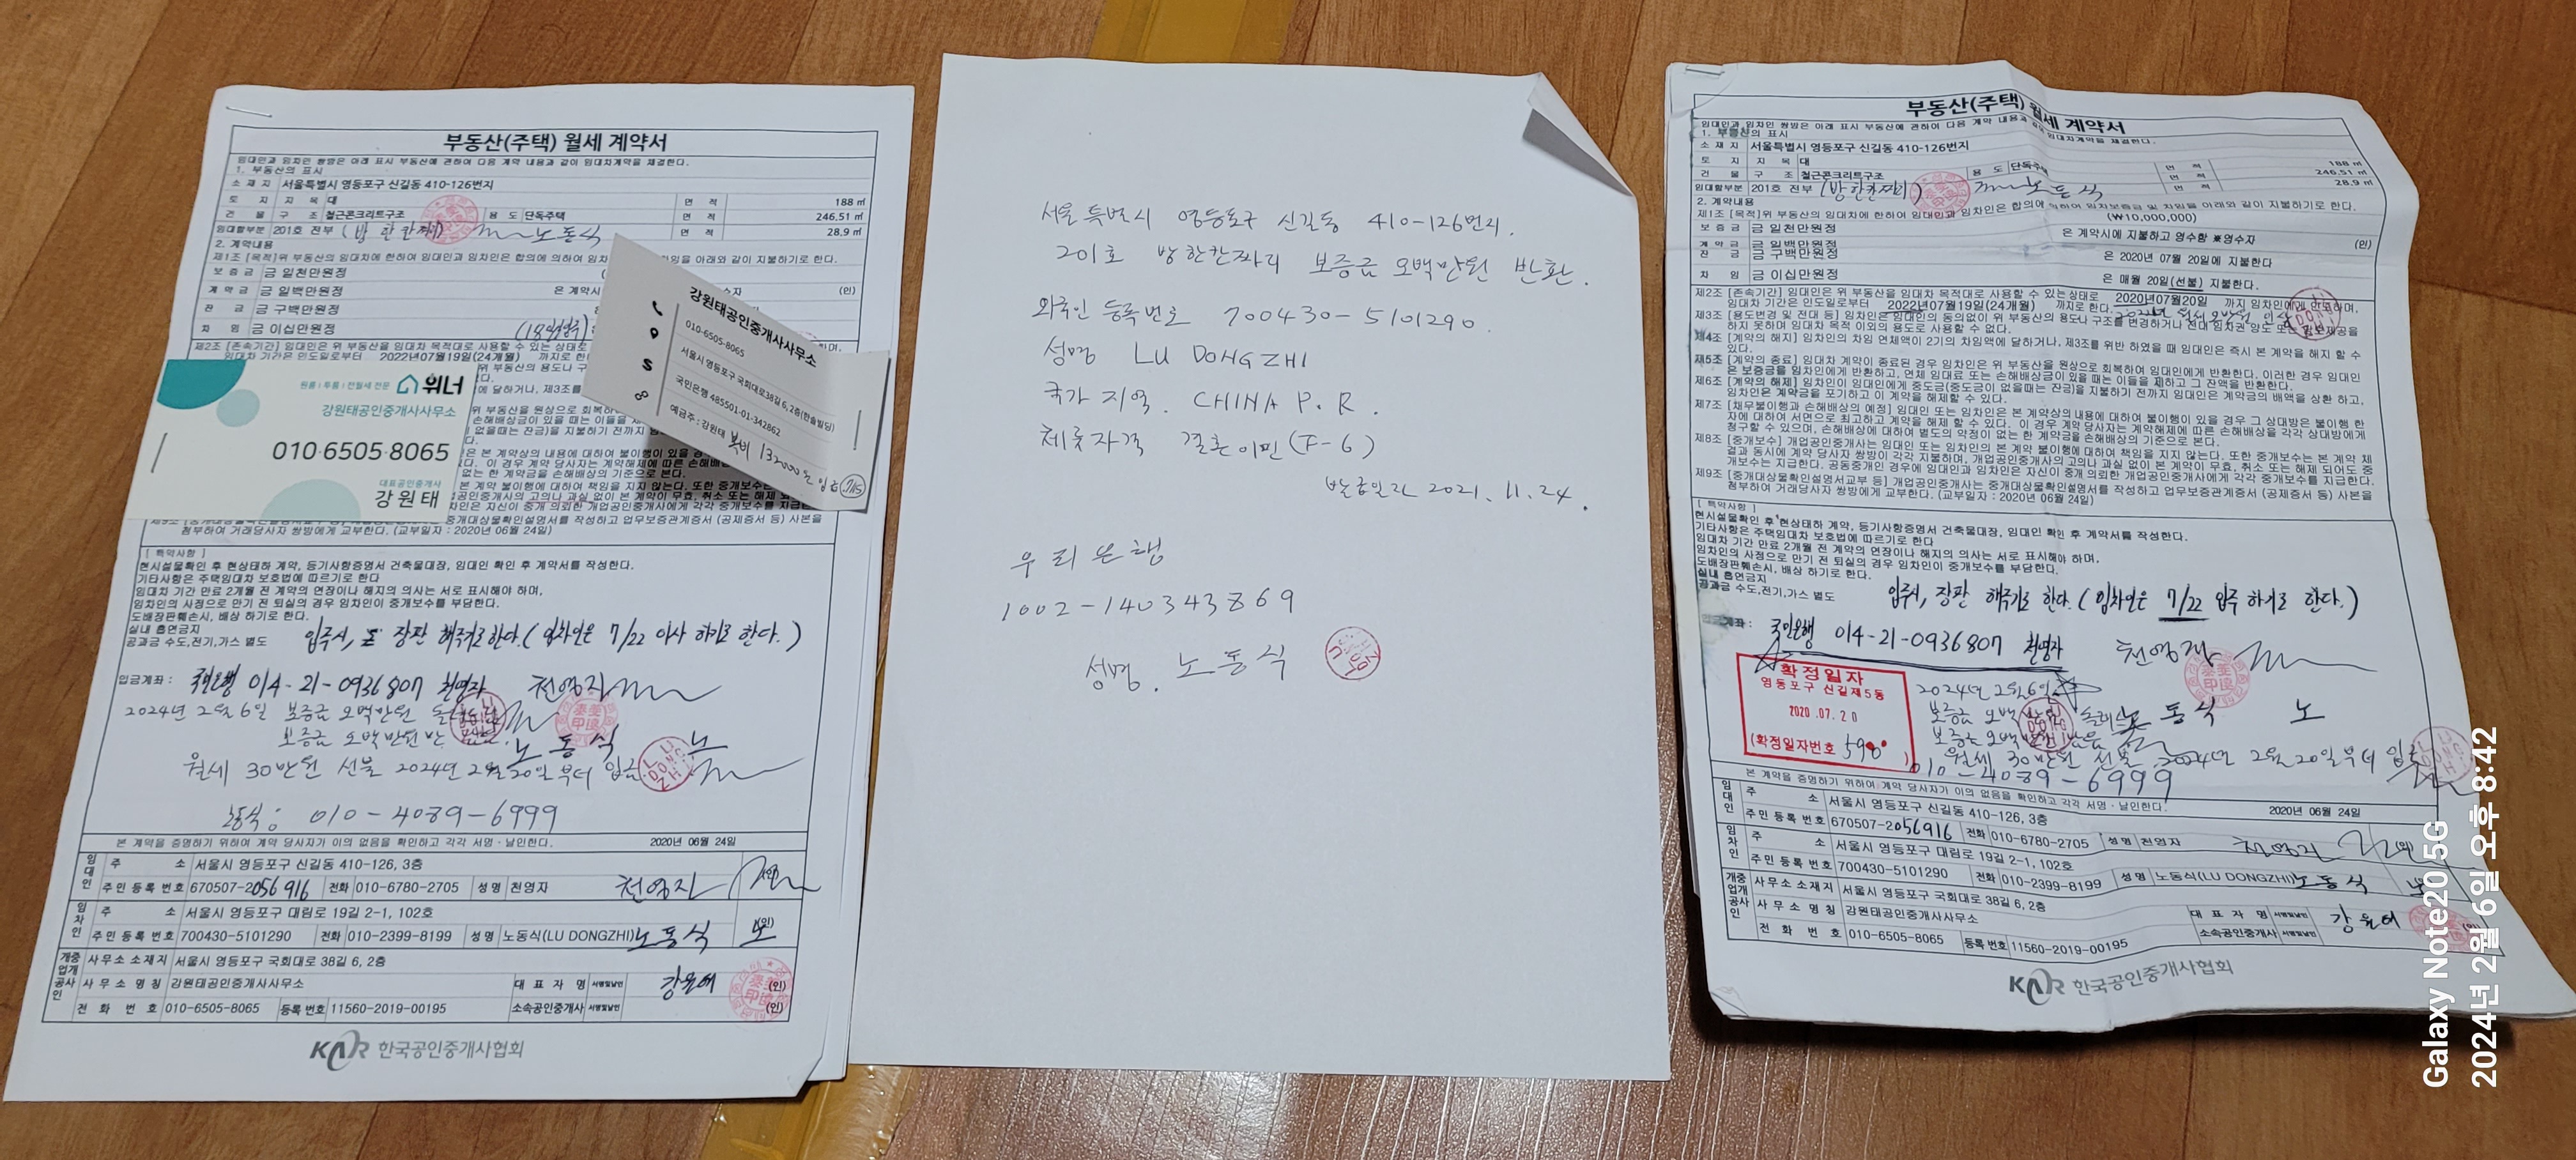 부동산(주택) 월세 계약서
임대인과 임차인 쌍방은 아래 표시 부동산에 관하여 다음 계약 내용과 같이 임대차계약을 체결한다.
1. 부동산의 표시
소 재 지 서울특별시 영등포구 신길동 410-126번지
토 지 지 목 대 면 적 188 ㎡
건 물 구 조 철근콘크리트구조 용 도 단독주택 면 적 246.51 ㎡
임대할부분 201호 전부 (방 한칸짜리) 노동식 면 적 28.9 ㎡
2. 계약내용
제1조 [목적]위 부동산의 임대차에 한하여 임대인과 임차인은 합의에 의하여 임차 을 아래와 같이 지불하기로 한다.
보 증 금 금 일천만원정
계 약 금 금 일백만원정 은 계약시 (인)
잔 금 금 구백만원정
차 임 금 이십만원정
제2조 [존속기간] 임대인은 위 부동산을 임대차 목적대로 사용할 수 있는상태로
임대차 기간은 인도일로부터 2022년07월19일(24개월) 까지로 한
강원태공인중개사사무소
010-6505-8065
서울시 영등포구 국회대로38길 6, 2층(한솔빌딩)
국민은행 485501-01-342862
예금주 : 강원태 복비 132000원 입금 7/15
원룸 | 투룸 | 전월세 전문 위너
강원태공인중개사사무소
010·6505·8065
대표공인중개사
강 원 태
첨부하여 거래당사자 쌍방에게 교부한다. (교부일자 : 2020년 06월 24일)
[ 특약사항 ]
현시설물확인 후 현상태하 계약, 등기사항증명서 건축물대장, 임대인 확인 후 계약서를 작성한다.
기타사항은 주택임대차 보호법에 따르기로 한다
임대차 기간 만료 2개월 전 계약의 연장이나 해지의 의사는 서로 표시해야 하며,
임차인의 사정으로 만기 전 퇴실의 경우 임차인이 중개보수를 부담한다.
도배장판훼손시, 배상 하기로 한다.
실내 흡연금지
공과금 수도,전기,가스 별도
입주시, 장판 해주기로 한다. (임차인은 7/22 이사 하기로 한다.)
입금계좌 : 국민은행 014-21-0936807 천영자 천영자
2024년 2월 6일 보증금 오백만원
보증금 오백만원
노동식 노
월세 30만원 선불 2024년 2월 20일부터 입금
노동식 : 010-4089-6999
본 계약을 증명하기 위하여 계약 당사자가 이의 없음을 확인하고 각각 서명·날인한다. 2020년 06월 24일
임대인 주 소 서울시 영등포구 신길동 410-126, 3층
주민 등록 번호 670507-2056916 전화 010-6780-2705 성 명 천영자 천영자
임차인 주 소 서울시 영등포구 대림로 19길 2-1, 102호
주민 등록 번호 700430-5101290 전화 010-2399-8199 성 명 노동식(LU DONGZHI) 노동식
개업공인중개사 사무소 소재지 서울시 영등포구 국회대로 38길 6, 2층
사 무 소 명 칭 강원태공인중개사사무소 대 표 자 명 서명및날인 강원태 (인)
전 화 번 호 010-6505-8065 등록 번호 11560-2019-00195 소속공인중개사 서명및날인 (인)
KAR 한국공인중개사협회
서울특별시 영등포구 신길동 410-126번지.
201호 방한칸짜리 보증금 오백만원 반환.
외국인 등록번호 700430-5101290.
성명 LU DONGZHI
국가 지역. CHINA P.R.
체류자격 결혼이민(F-6)
발급일자 2021.11.24.
우리은행
1002-140343869
성명. 노동식
부동산(주택) 월세 계약서
임대인과 임차인 쌍방은 아래 표시 부동산에 관하여 다음 계약 내용과 같이 임대차계약을 체결한다.
1. 부동산의 표시
소 재 지 서울특별시 영등포구 신길동 410-126번지
토 지 지 목 대 면 적 188 ㎡
건 물 구 조 철근콘크리트구조 용 도 단독주택 면 적 246.51 ㎡
임대할부분 201호 전부 (방한칸짜리) 노동식 면 적 28.9 ㎡
2. 계약내용
제1조 [목적]위 부동산의 임대차에 한하여 임대인과 임차인은 합의에 의하여 임차보증금 및 차임을 아래와 같이 지불하기로 한다.
보 증 금 금 일천만원정 (₩10,000,000)
계 약 금 금 일백만원정 은 계약시에 지불하고 영수함 ※영수자 (인)
잔 금 금 구백만원정 은 2020년 07월 20일에 지불한다
차 임 금 이십만원정 은 매월 20일(선불) 지불한다.
제2조 [존속기간] 임대인은 위 부동산을 임대차 목적대로 사용할 수 있는상태로 2020년07월20일 까지 임차인에게 인도하며,
임대차 기간은 인도일로부터 2022년07월19일(24개월) 까지로 한다.
제3조 [용도변경 및 전대 등] 임차인은 임대인의 동의없이 위 부동산의 용도나 구조를 변경하거나 전대 임차권 양도 또는 담보제공을
하지 못하며 임대차 목적 이외의 용도로 사용할 수 없다.
제4조 [계약의 해지] 임차인의 차임 연체액이 2기의 차임액에 달하거나, 제3조를 위반 하였을 때 임대인은 즉시 본 계약을 해지 할 수
있다.
제5조 [계약의 종료] 임대차 계약이 종료된 경우 임차인은 위 부동산을 원상으로 회복하여 임대인에게 반환한다. 이러한 경우 임대인
은 보증금을 임차인에게 반환하고, 연체 임대료 또는 손해배상금이 있을 때는 이들을 제하고 그 잔액을 반환한다.
제6조 [계약의 해제] 임차인이 임대인에게 중도금(중도금이 없을때는 잔금)을 지불하기 전까지 임대인은 계약금의 배액을 상환 하고,
임차인은 계약금을 포기하고 이 계약을 해제할 수 있다.
제7조 [채무불이행과 손해배상의 예정] 임대인 또는 임차인은 본 계약상의 내용에 대하여 불이행이 있을 경우 그 상대방은 불이행 한
자에 대하여 서면으로 최고하고 계약을 해제 할 수 있다. 이 경우 계약 당사자는 계약해제에 따른 손해배상을 각각 상대방에게
청구할 수 있으며, 손해배상에 대하여 별도의 약정이 없는 한 계약금을 손해배상의 기준으로 본다.
제8조 [중개보수] 개업공인중개사는 임대인 또는 임차인의 본 계약 불이행에 대하여 책임을 지지 않는다. 또한 중개보수는 본 계약 체
결과 동시에 계약 당사자 쌍방이 각각 지불하며, 개업공인중개사의 고의나 과실 없이 본 계약이 무효, 취소 또는 해제 되어도 중
개보수는 지급한다. 공동중개인 경우에 임대인과 임차인은 자신이 중개 의뢰한 개업공인중개사에게 각각 중개보수를 지급한다.
제9조 [중개대상물확인설명서교부 등] 개업공인중개사는 중개대상물확인설명서를 작성하고 업무보증관계증서 (공제증서 등) 사본을
첨부하여 거래당사자 쌍방에게 교부한다. (교부일자 : 2020년 06월 24일)
[ 특약사항 ]
현시설물확인 후 현상태하 계약, 등기사항증명서 건축물대장, 임대인 확인 후 계약서를 작성한다.
기타사항은 주택임대차 보호법에 따르기로 한다
임대차 기간 만료 2개월 전 계약의 연장이나 해지의 의사는 서로 표시해야 하며,
임차인의 사정으로 만기 전 퇴실의 경우 임차인이 중개보수를 부담한다.
도배장판훼손시, 배상 하기로 한다.
실내 흡연금지
공과금 수도,전기,가스 별도
입주시, 장판 해주기로 한다. (임차인은 7/22 입주 하기로 한다.)
국민은행 014-21-0936807 천영자 천영자
확정일자
영등포구 신길제5동
2020.07.20
(확정일자번호 598)
2024년 2월 6일
보증금 오백만원 노동식 노
보증금 오백만원
월세 30만원 선불 2024년 2월 20일부터 입금
010-4089-6999
본 계약을 증명하기 위하여 계약 당사자가 이의 없음을 확인하고 각각 서명·날인한다. 2020년 06월 24일
임대인 주 소 서울시 영등포구 신길동 410-126, 3층
주민 등록 번호 670507-2056916 전화 010-6780-2705 성 명 천영자 천영자
임차인 주 소 서울시 영등포구 대림로 19길 2-1, 102호
주민 등록 번호 700430-5101290 전화 010-2399-8199 성 명 노동식(LU DONGZHI) 노동식
개업공인중개사 사무소 소재지 서울시 영등포구 국회대로 38길 6, 2층
사 무 소 명 칭 강원태공인중개사사무소 대 표 자 명 서명및날인 강원태 (인)
전 화 번 호 010-6505-8065 등록 번호 11560-2019-00195 소속공인중개사 서명및날인
KAR 한국공인중개사협회
Galaxy Note20 5G
2024년 2월 6일 오후 8:42